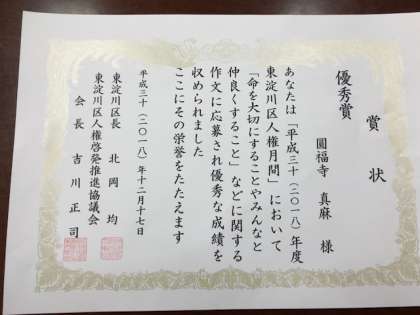 賞状
優秀賞
圓福寺 真麻 様
あなたは「平成三十(二〇一八)年度
東淀川区人権月間」において
「命を大切にすることやみんなと
仲良くすること」などに関する
作文に応募され優秀な成績を
収められました
ここにその栄誉をたたえます
平成三十(二〇一八)年十二月十七日
東淀川区長 北岡 均
東淀川区人権啓発推進協議会
会長 吉川 正司